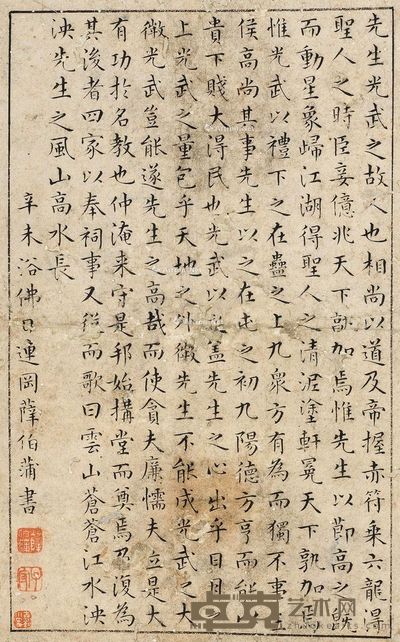 先生光武之故人也相尚以道及帝握赤符乘六龍得
聖人之時臣妾億兆天下孰加焉惟先生以節高之既
而動星象歸江湖得聖人之清泥塗軒冕天下孰加焉
惟光武以禮下之在蠱之上九眾方有為而獨不事王
侯高尚其事先生以之在屯之初九陽德方亨而能以
貴下賤大得民也光武以之蓋先生之心出乎日月之
上光武之量包乎天地之外微先生不能成光武之大
微光武豈能遂先生之高哉而使貪夫廉懦夫立是大
有功於名教也仲淹來守是邦始搆堂而奠焉乃復為
其後者四家以奉祠事又從而歌曰雲山蒼蒼江水泱
泱先生之風山高水長
辛未浴佛日連岡薛伯蒲書